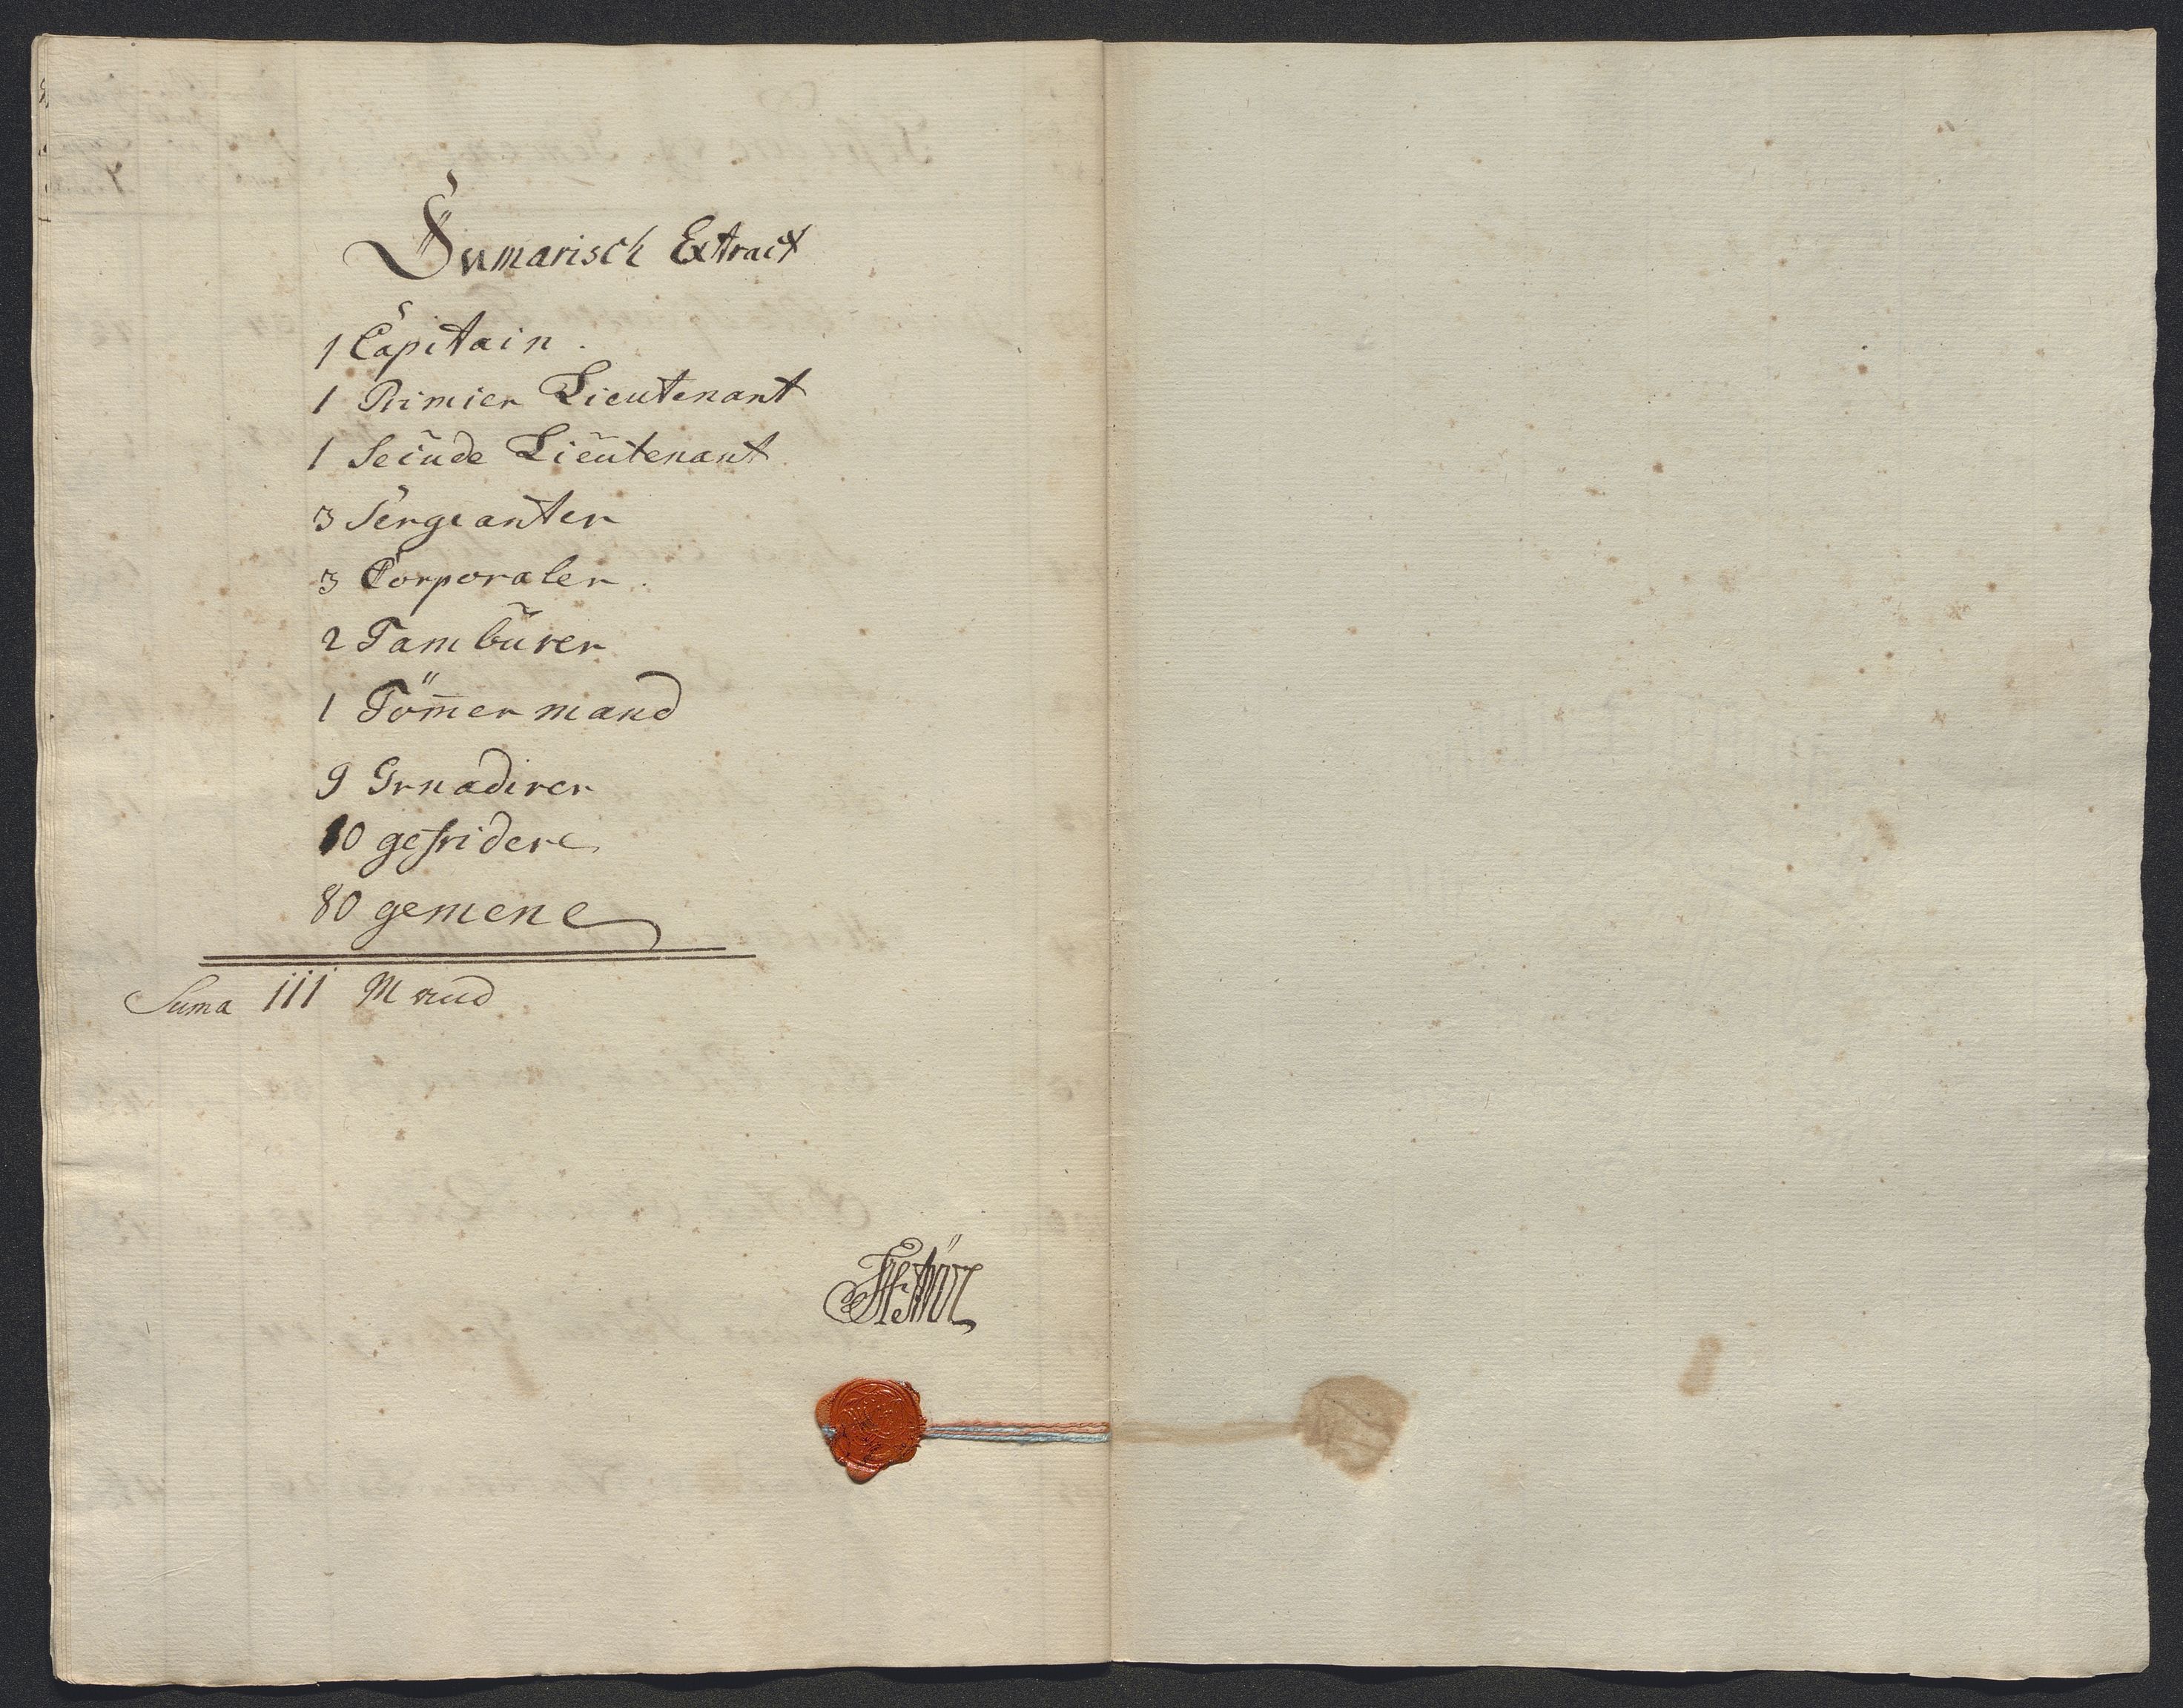 Sumarisch Extract
1 Capitain.
1 Primier Lieutenant
1 Secude Lieutenant
3 Sergeanter
3 Corporaler.
2 Tambürer
1 Töm̄ermand
9 Grnadirer
10 gefridere
80 gemene
Suma 111 Mand